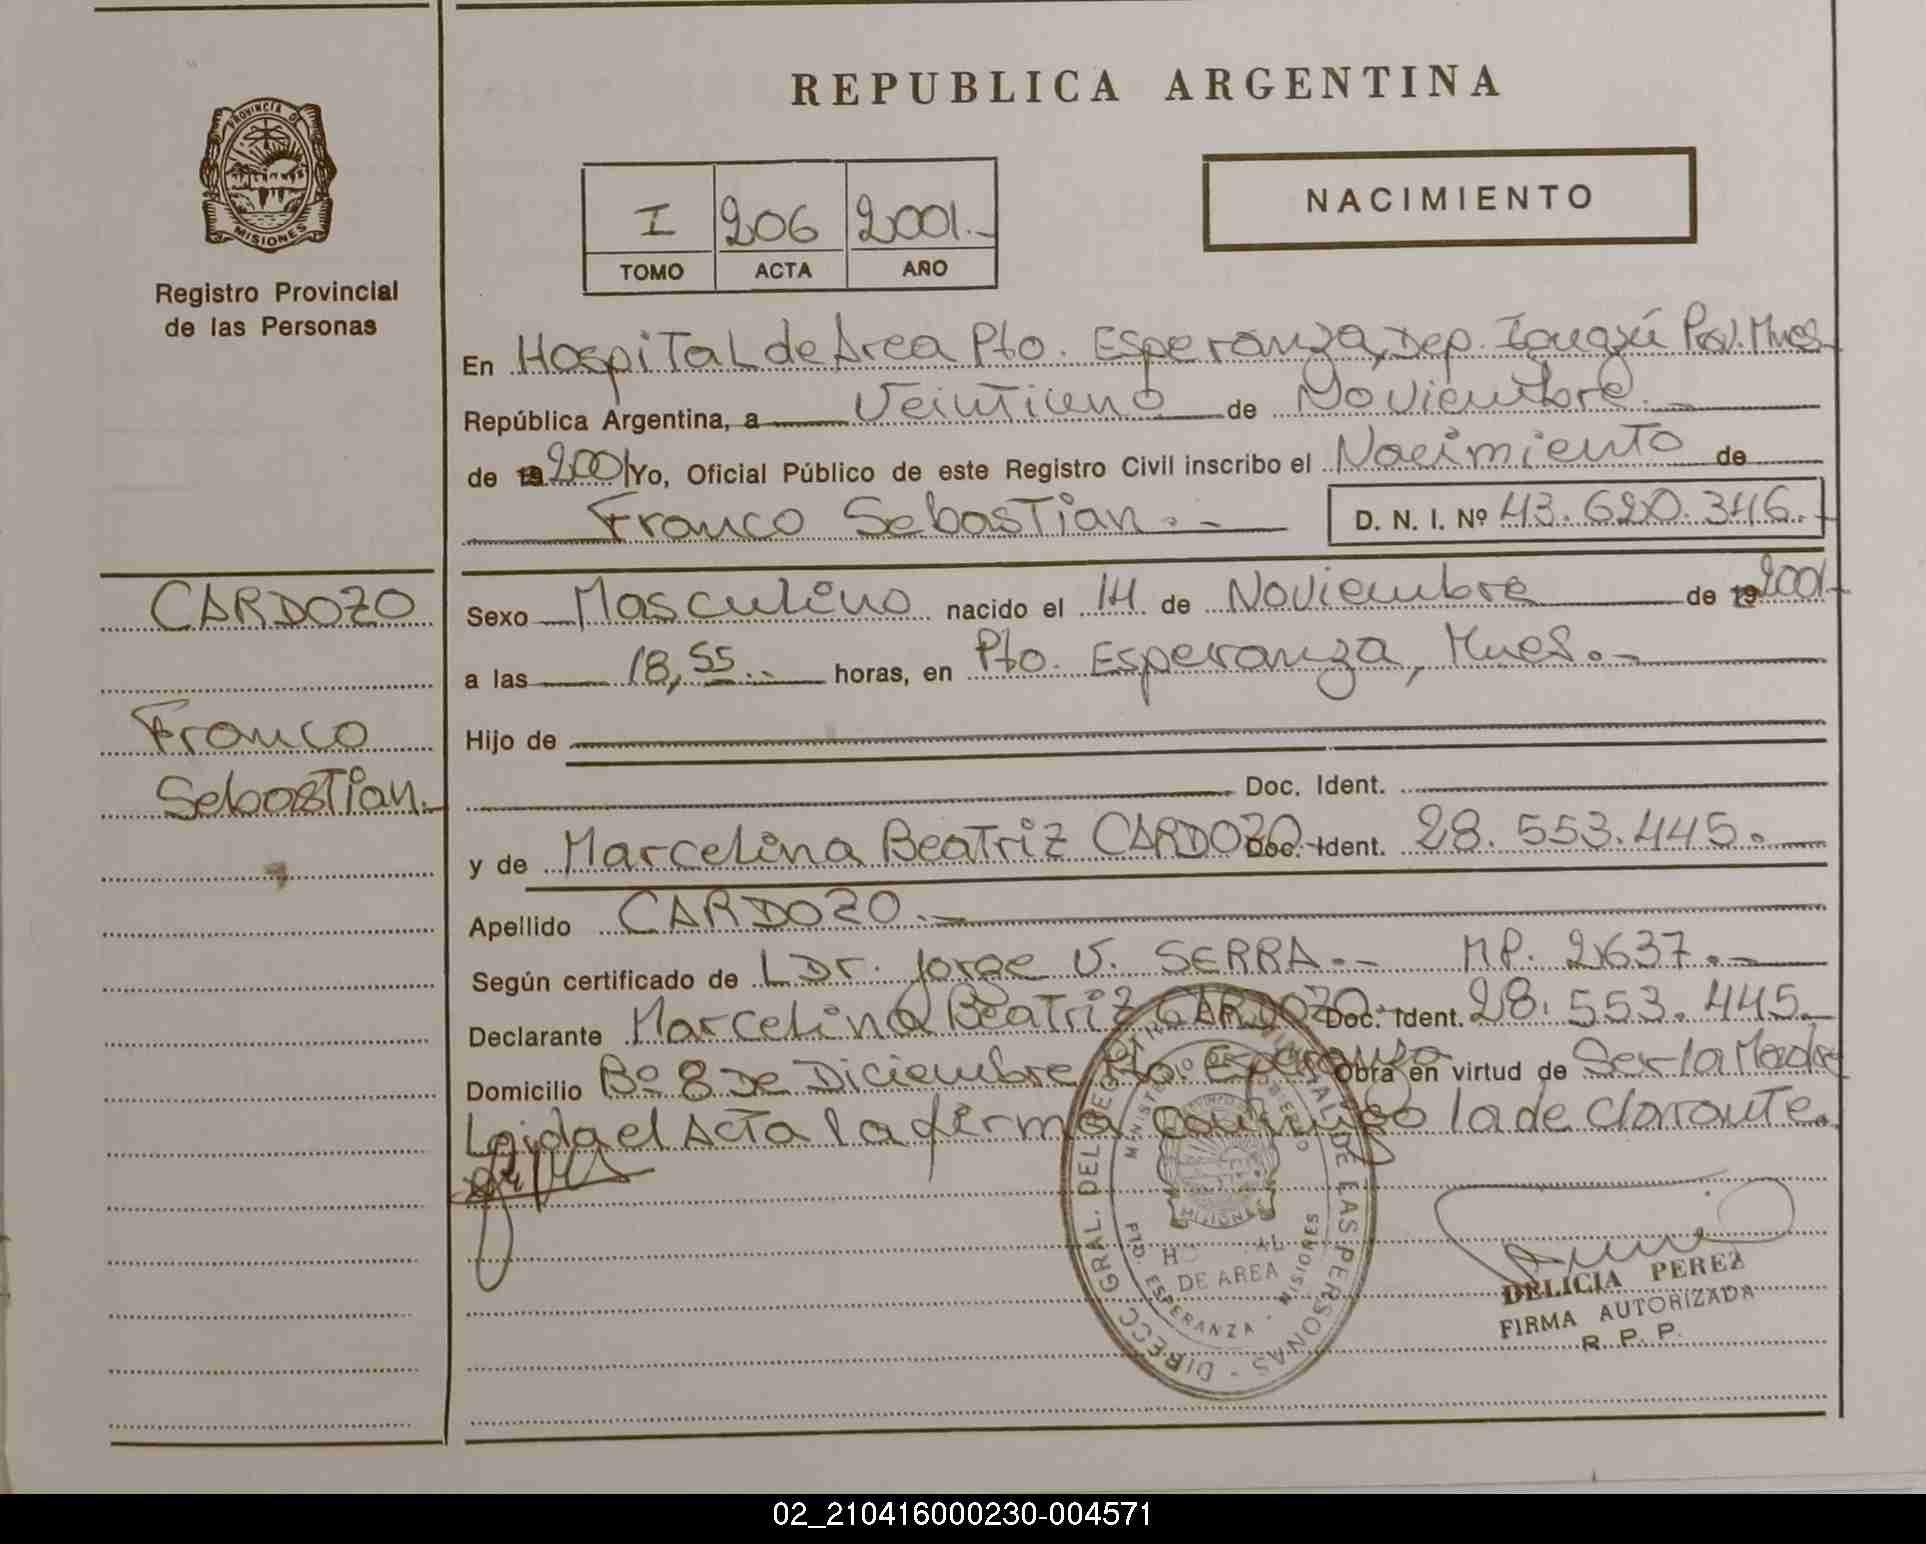 REPUBLICA ARGENTINA
PROVINCIA DE
MISIONES
Registro Provincial
de las Personas
I 206 2001.-
TOMO ACTA AÑO
NACIMIENTO
En Hospital de Area Pto. Esperanza, Dep. Iguazú Prov. Mnes
República Argentina, a Veintiuno de Noviembre.-
de 19 2001 Yo, Oficial Público de este Registro Civil inscribo el Nacimiento de
Franco Sebastian.-
D. N. I. Nº 43.620.346.-
CARDOZO
Franco
Sebastian.-
Sexo Masculino nacido el 14 de Noviembre de 19 2001.-
a las 18,55.- horas, en Pto. Esperanza, Mnes.-
Hijo de
Doc. Ident.
y de Marcelina Beatriz CARDOZO Doc. Ident. 28.553.445.-
Apellido CARDOZO.-
Según certificado de L Dr. Jorge V. SERRA.- MP. 2637.-
Declarante Marcelina Beatriz CARDOZO Doc. Ident. 28.553.445.-
Domicilio Bº 8 De Diciembre Pto. Esperanza Obra en virtud de Ser la Madre
Leida el Acta la firma conmigo la declarante.
DIRECC GRAL. DEL REG DE LAS PERSONAS
MINISTERIO DE GOBIERNO
MISIONES
DE AREA
PTO. ESPERANZA - MISIONES
DELICIA PEREZ
FIRMA AUTORIZADA
R. P. P.
02_210416000230-004571